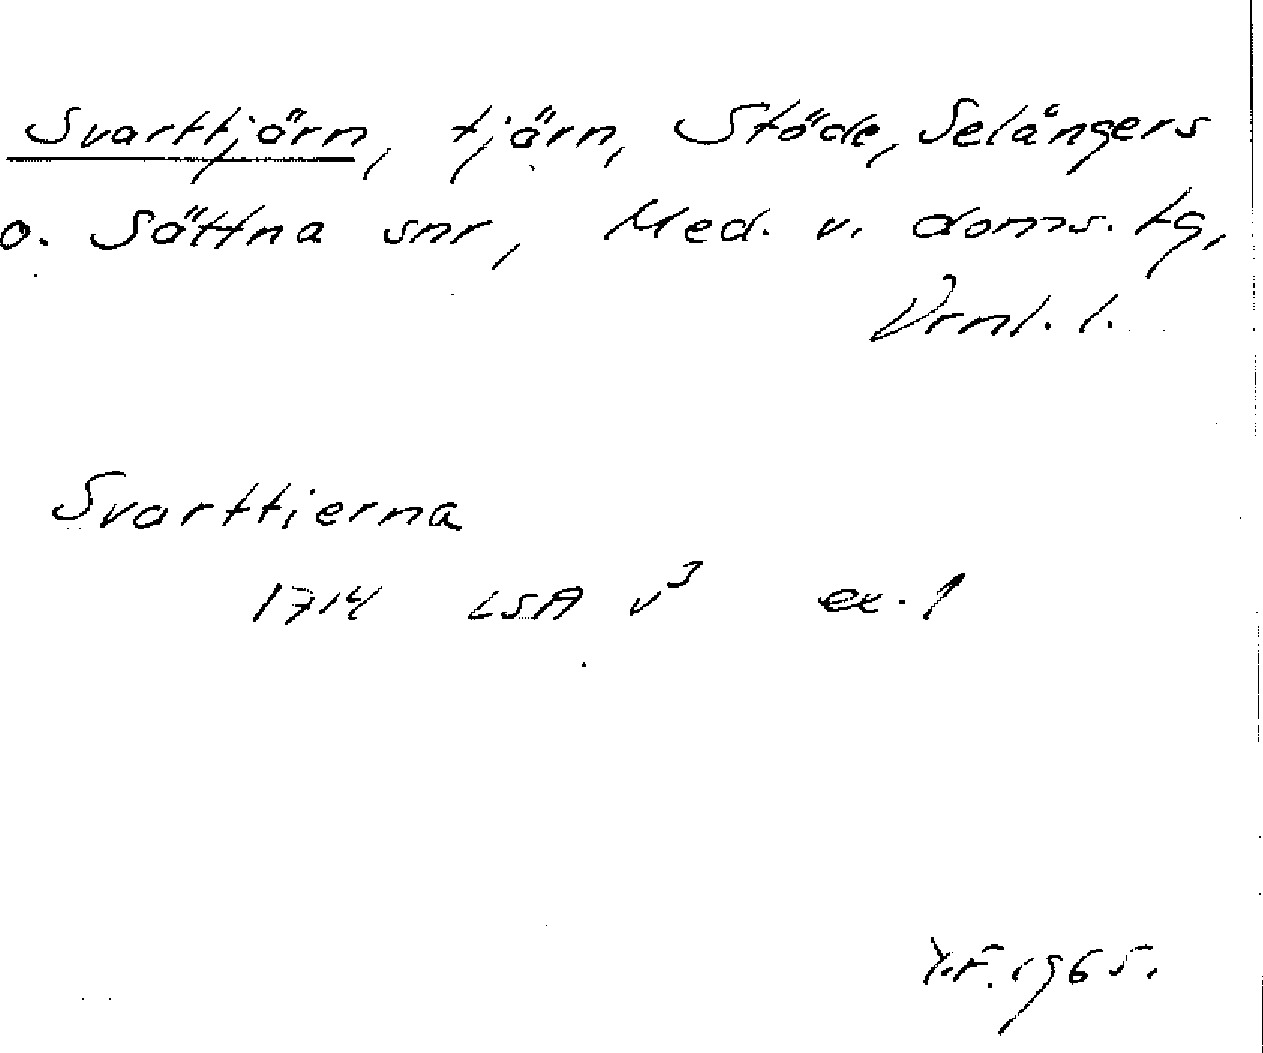 Svarttjärn, tjärn, Stöde, Selångers
o. Sättna snr, Med. v. doms. tg,
Vrnl. l.
Svarttierna
1714 LSA v³ ex. 1
Y.F. 1965.